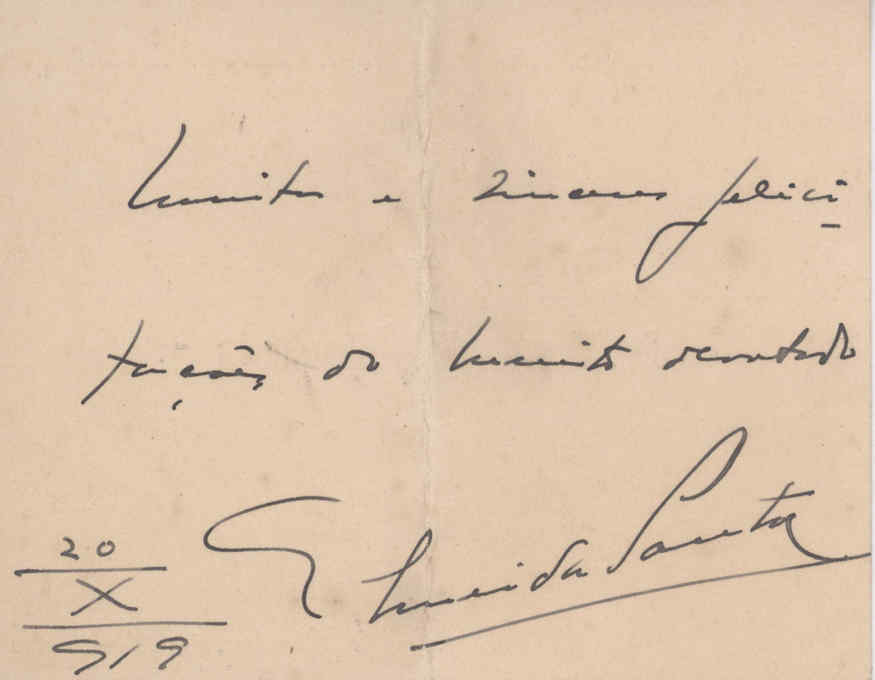 Muitas e sinceras felici-
tações do muito devotado
Almeida Santos
20
X
919